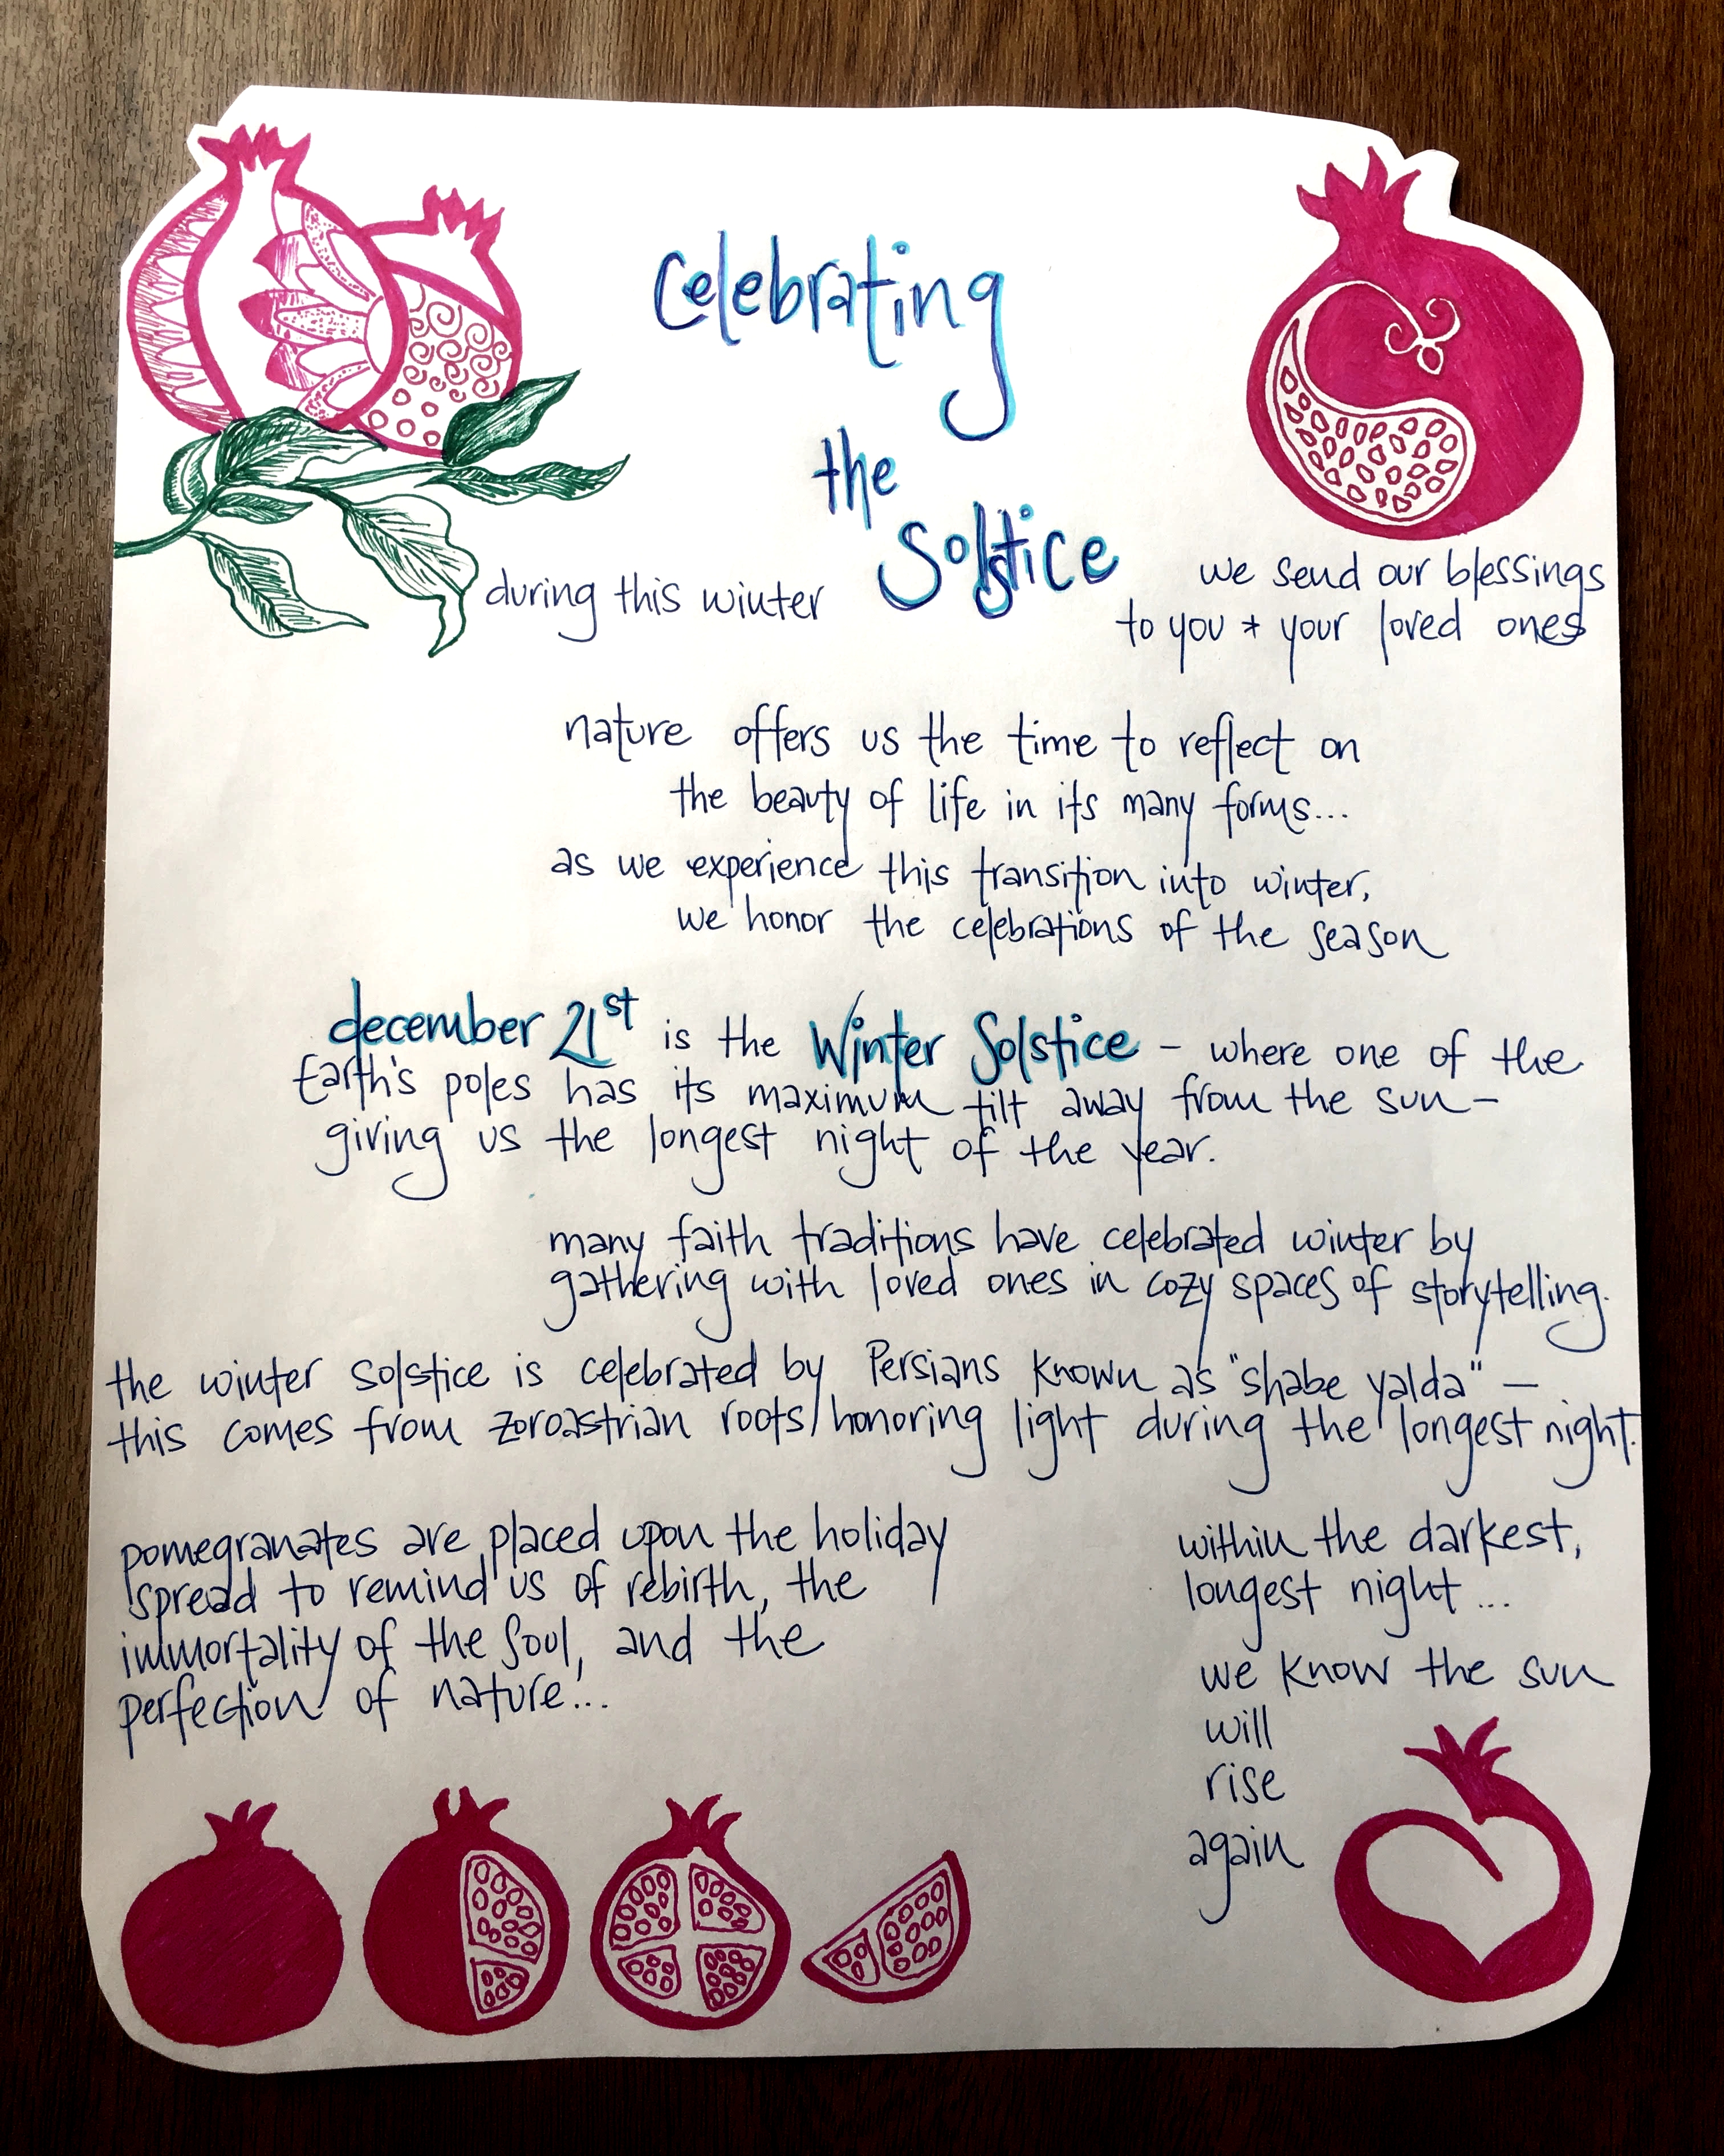 Celebrating
the
Solstice
during this winter
we send our blessings
to you + your loved ones
nature offers us the time to reflect on
the beauty of life in its many forms...
as we experience this transition into winter,
we honor the celebrations of the season
december 21st is the Winter Solstice – where one of the
Earth's poles has its maximum tilt away from the sun –
giving us the longest night of the year.
many faith traditions have celebrated winter by
gathering with loved ones in cozy spaces of storytelling.
the winter solstice is celebrated by Persians known as "shabe yalda" –
this comes from zoroastrian roots/honoring light during the longest night.
pomegranates are placed upon the holiday
spread to remind us of rebirth, the
immortality of the soul, and the
perfection of nature...
within the darkest,
longest night...
we know the sun
will
rise
again